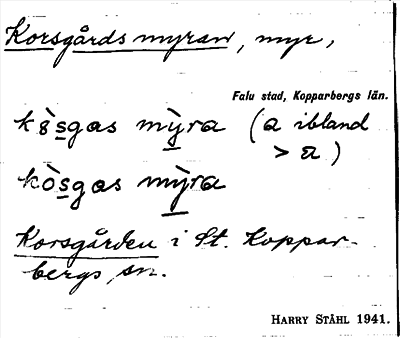 Korsgårdsmyran, myr,
Falu stad, Kopparbergs län.
kò̀sgas mỳra (a ibland
> a)
kòsgas mỳra
Korsgården i St. Koppar-
bergs sn.
HARRY STÅHL 1941.